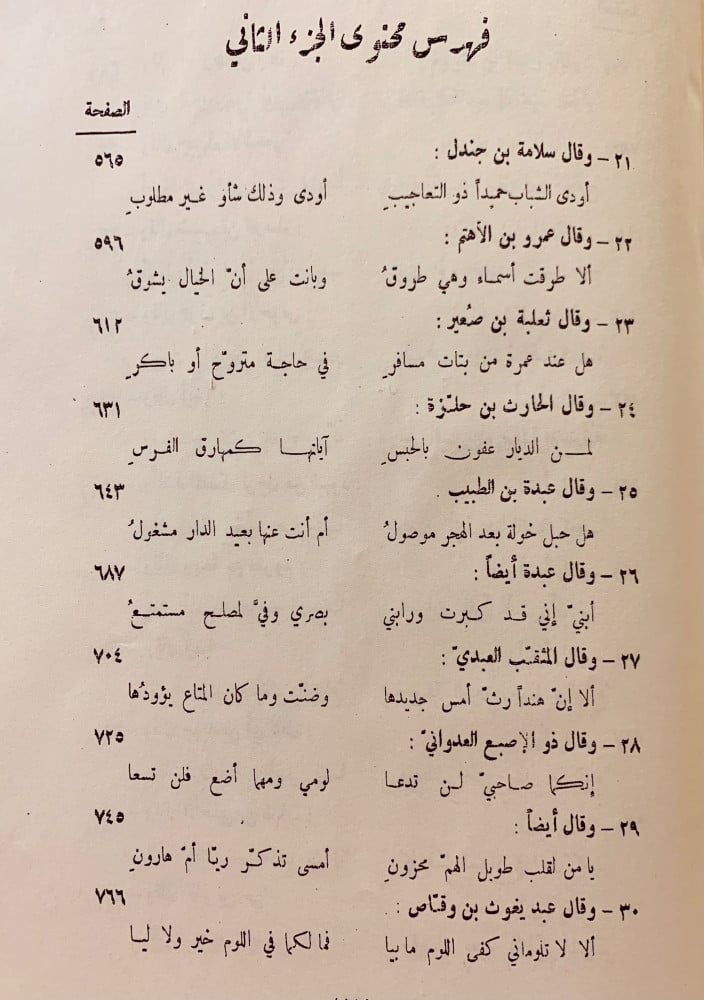 فهرس محتوى الجزء الثاني
الصفحة
٢١ – وقال سلامة بن جندل : ٥٦٥
أودى الشباب حميداً ذو التعاجيبِ أودى وذلك شأو غير مطلوبِ
٢٢ – وقال عمرو بن الأهتم : ٥٩٦
ألا طرقت أسماء وهي طروقُ وبانت على أنّ الخيال يشوقُ
٢٣ – وقال ثعلبة بن صُعير : ٦١٢
هل عند عمرة من بتات مسافرِ في حاجة متروّح أو باكرِ
٢٤ – وقال الحارث بن حلّزة : ٦٣١
لمن الديار عفون بالحبسِ آياتها كمهارق الفرسِ
٢٥ – وقال عبدة بن الطبيب . ٦٤٣
هل حبل خولة بعد الهجر موصولُ أم أنت عنها بعيد الدار مشغولُ
٢٦ – وقال عبدة أيضاً : ٦٨٧
أبنيّ إني قد كبرت ورابني بصري وفيَّ لمصلح مستمتعُ
٢٧ – وقال المثقّب العبديّ : ٧٠٤
ألا إنّ هنداً رثّ أمس جديدها وضنّت وما كان المتاع يؤودُها
٢٨ – وقال ذو الإصبع العدوانيّ : ٧٢٥
إنكما صاحبيّ لن تدعا لومي ومهما أضع فلن تسعا
٢٩ – وقال أيضاً : ٧٤٥
يا من لقلب طويل الهمّ محزونِ أمسى تذكّر ريّا أمّ هارونِ
٣٠ – وقال عبد يغوث بن وقّاص : ٧٦٦
ألا لا تلوماني كفى اللوم ما بيا فما لكما في اللوم خير ولا ليا